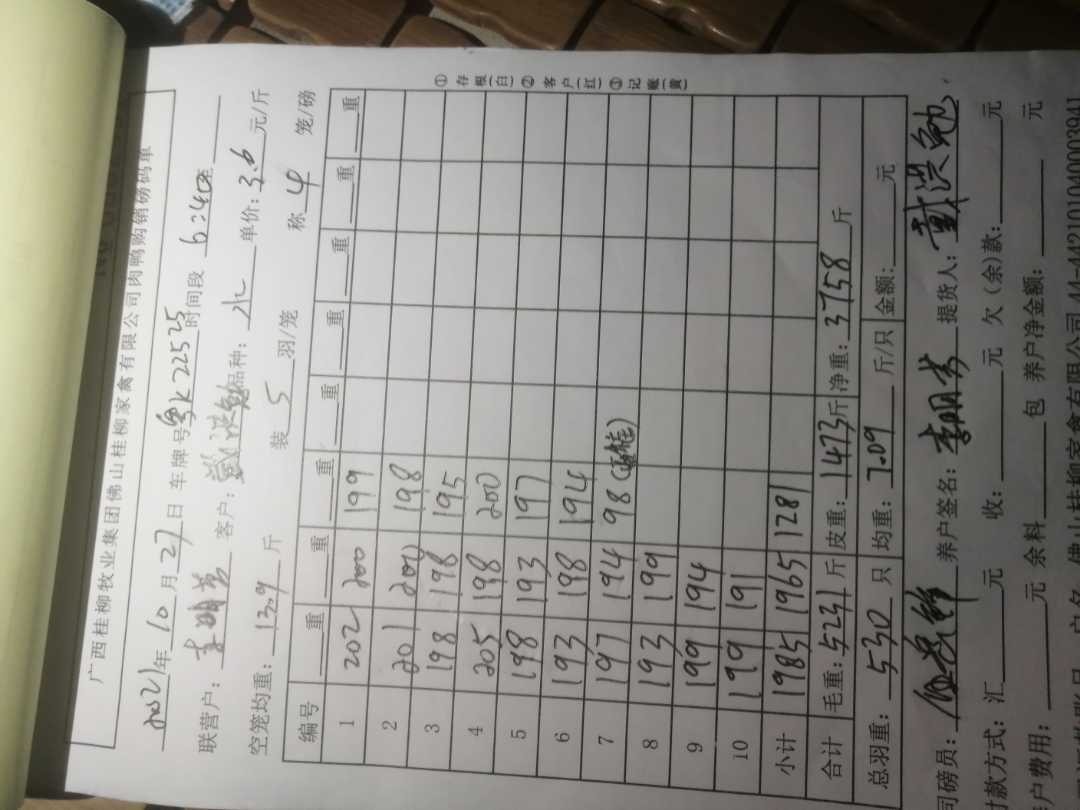 广西桂柳牧业集团佛山桂柳家禽有限公司肉鸭购销磅码单
2021年 10 月 27 日 车牌号 粤K22525 时间段 6:40
联营户: 李明芳 客户: 戴洪勉 品种: 水 单价: 3.6 元/斤
空笼均重: 13.9 斤 装 5 羽/笼 称 4 笼/磅
编号 重 重 重 重 重 重 重
1 202 200 199
2 201 200 198
3 198 198 195
4 205 198 200
5 198 193 197
6 193 198 194
7 197 194 98
8 193 199
9 199 194
10 199 191
小计 1985 1965 1281
合计 毛重: 5231 斤 皮重: 1473 斤 净重: 3758 斤
总羽重: 530 只 均重: 7.09 斤/只 金额: 元
司磅员: 养户签名: 李明芳 提货人: 戴洪勉
款方式: 汇 元 收: 元 欠(余)款: 元
户费用: 元 余料 包 养户净金额: 元
佛山桂柳家禽有限公司 44-442101040003941
①存根(白)②客户(红)③记账(黄)